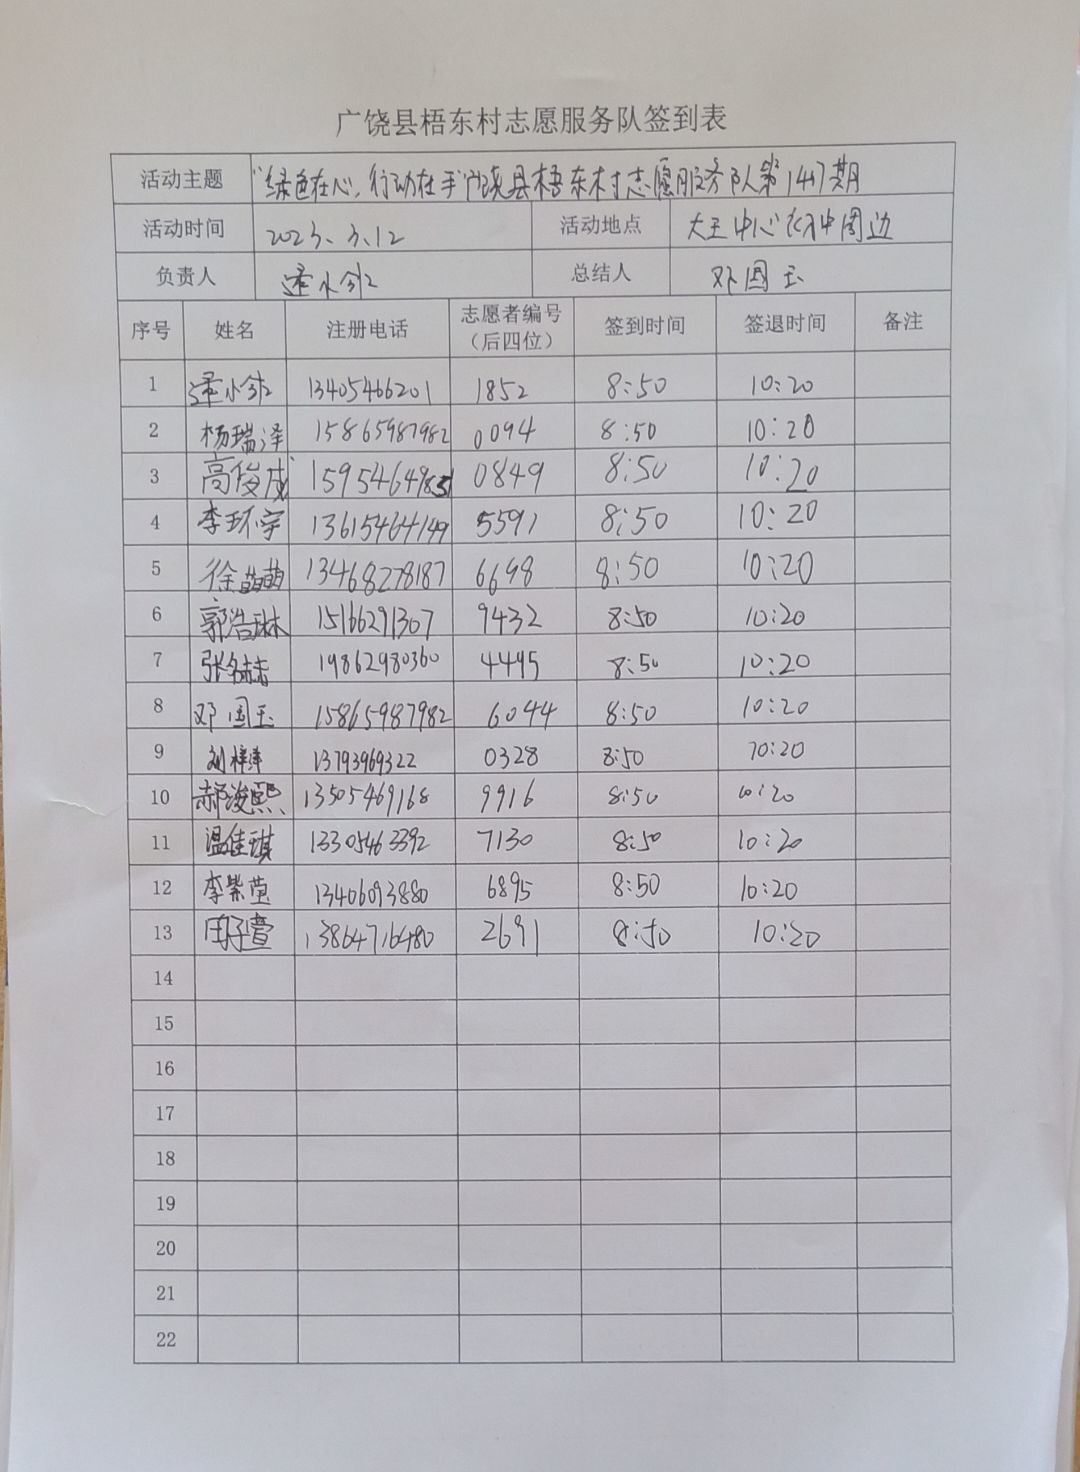 广饶县梧东村志愿服务队签到表
活动主题 "绿色在心,行动在手"广饶县梧东村志愿服务队第147期
活动时间 2023.3.12 活动地点 大王中心初中周边
负责人 总结人 邓国玉
序号 姓名 注册电话 志愿者编号(后四位) 签到时间 签退时间 备注
1 13405466201 1852 8:50 10:20
2 杨瑞泽 15865987982 0094 8:50 10:20
3 高俊成 0849 8:50 10:20
4 李环宇 13615464149 5591 8:50 10:20
5 徐萌萌 13468278187 6698 8:50 10:20
6 郭浩琳 15166291307 9432 8:50 10:20
7 19862980360 4495 8:50 10:20
8 邓国玉 15865987982 6044 8:50 10:20
9 刘梓涛 13793969322 0328 8:50 10:20
10 郝浚熙 13505469168 9916 8:50 10:20
11 温佳琪 13305463392 7130 8:50 10:20
12 李紫萱 13406093880 6895 8:50 10:20
13 13864716480 2691 8:50 10:20
14
15
16
17
18
19
20
21
22